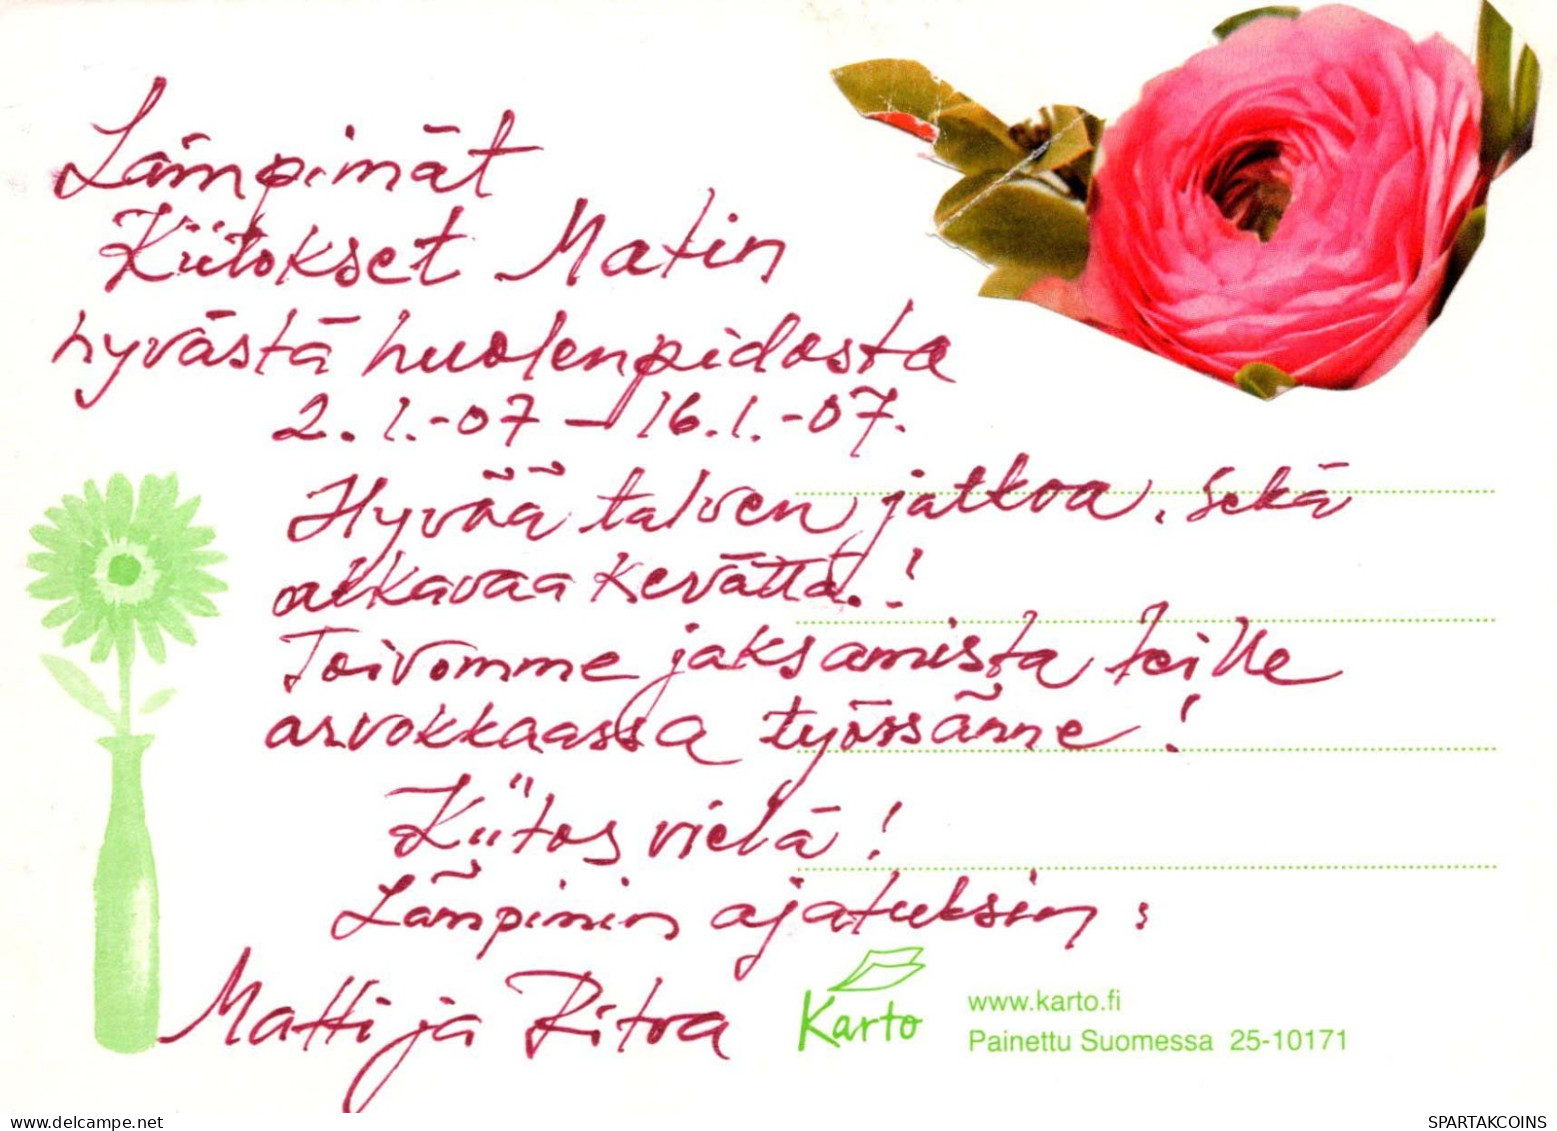 Lämpimät
Kiitokset Matin
hyvästä huolenpidosta
2.1.-07 – 16.1.-07.
Hyvää talven jatkoa, sekä
alkavaa kevättä!
Toivomme jaksamista teille
arvokkaassa työssänne!
Kiitos vielä!
Lämpimin ajatuksin:
Matti ja Ritva
Karto
www.karto.fi
Painettu Suomessa 25-10171
delcampe.net
SPARTAKCOINS